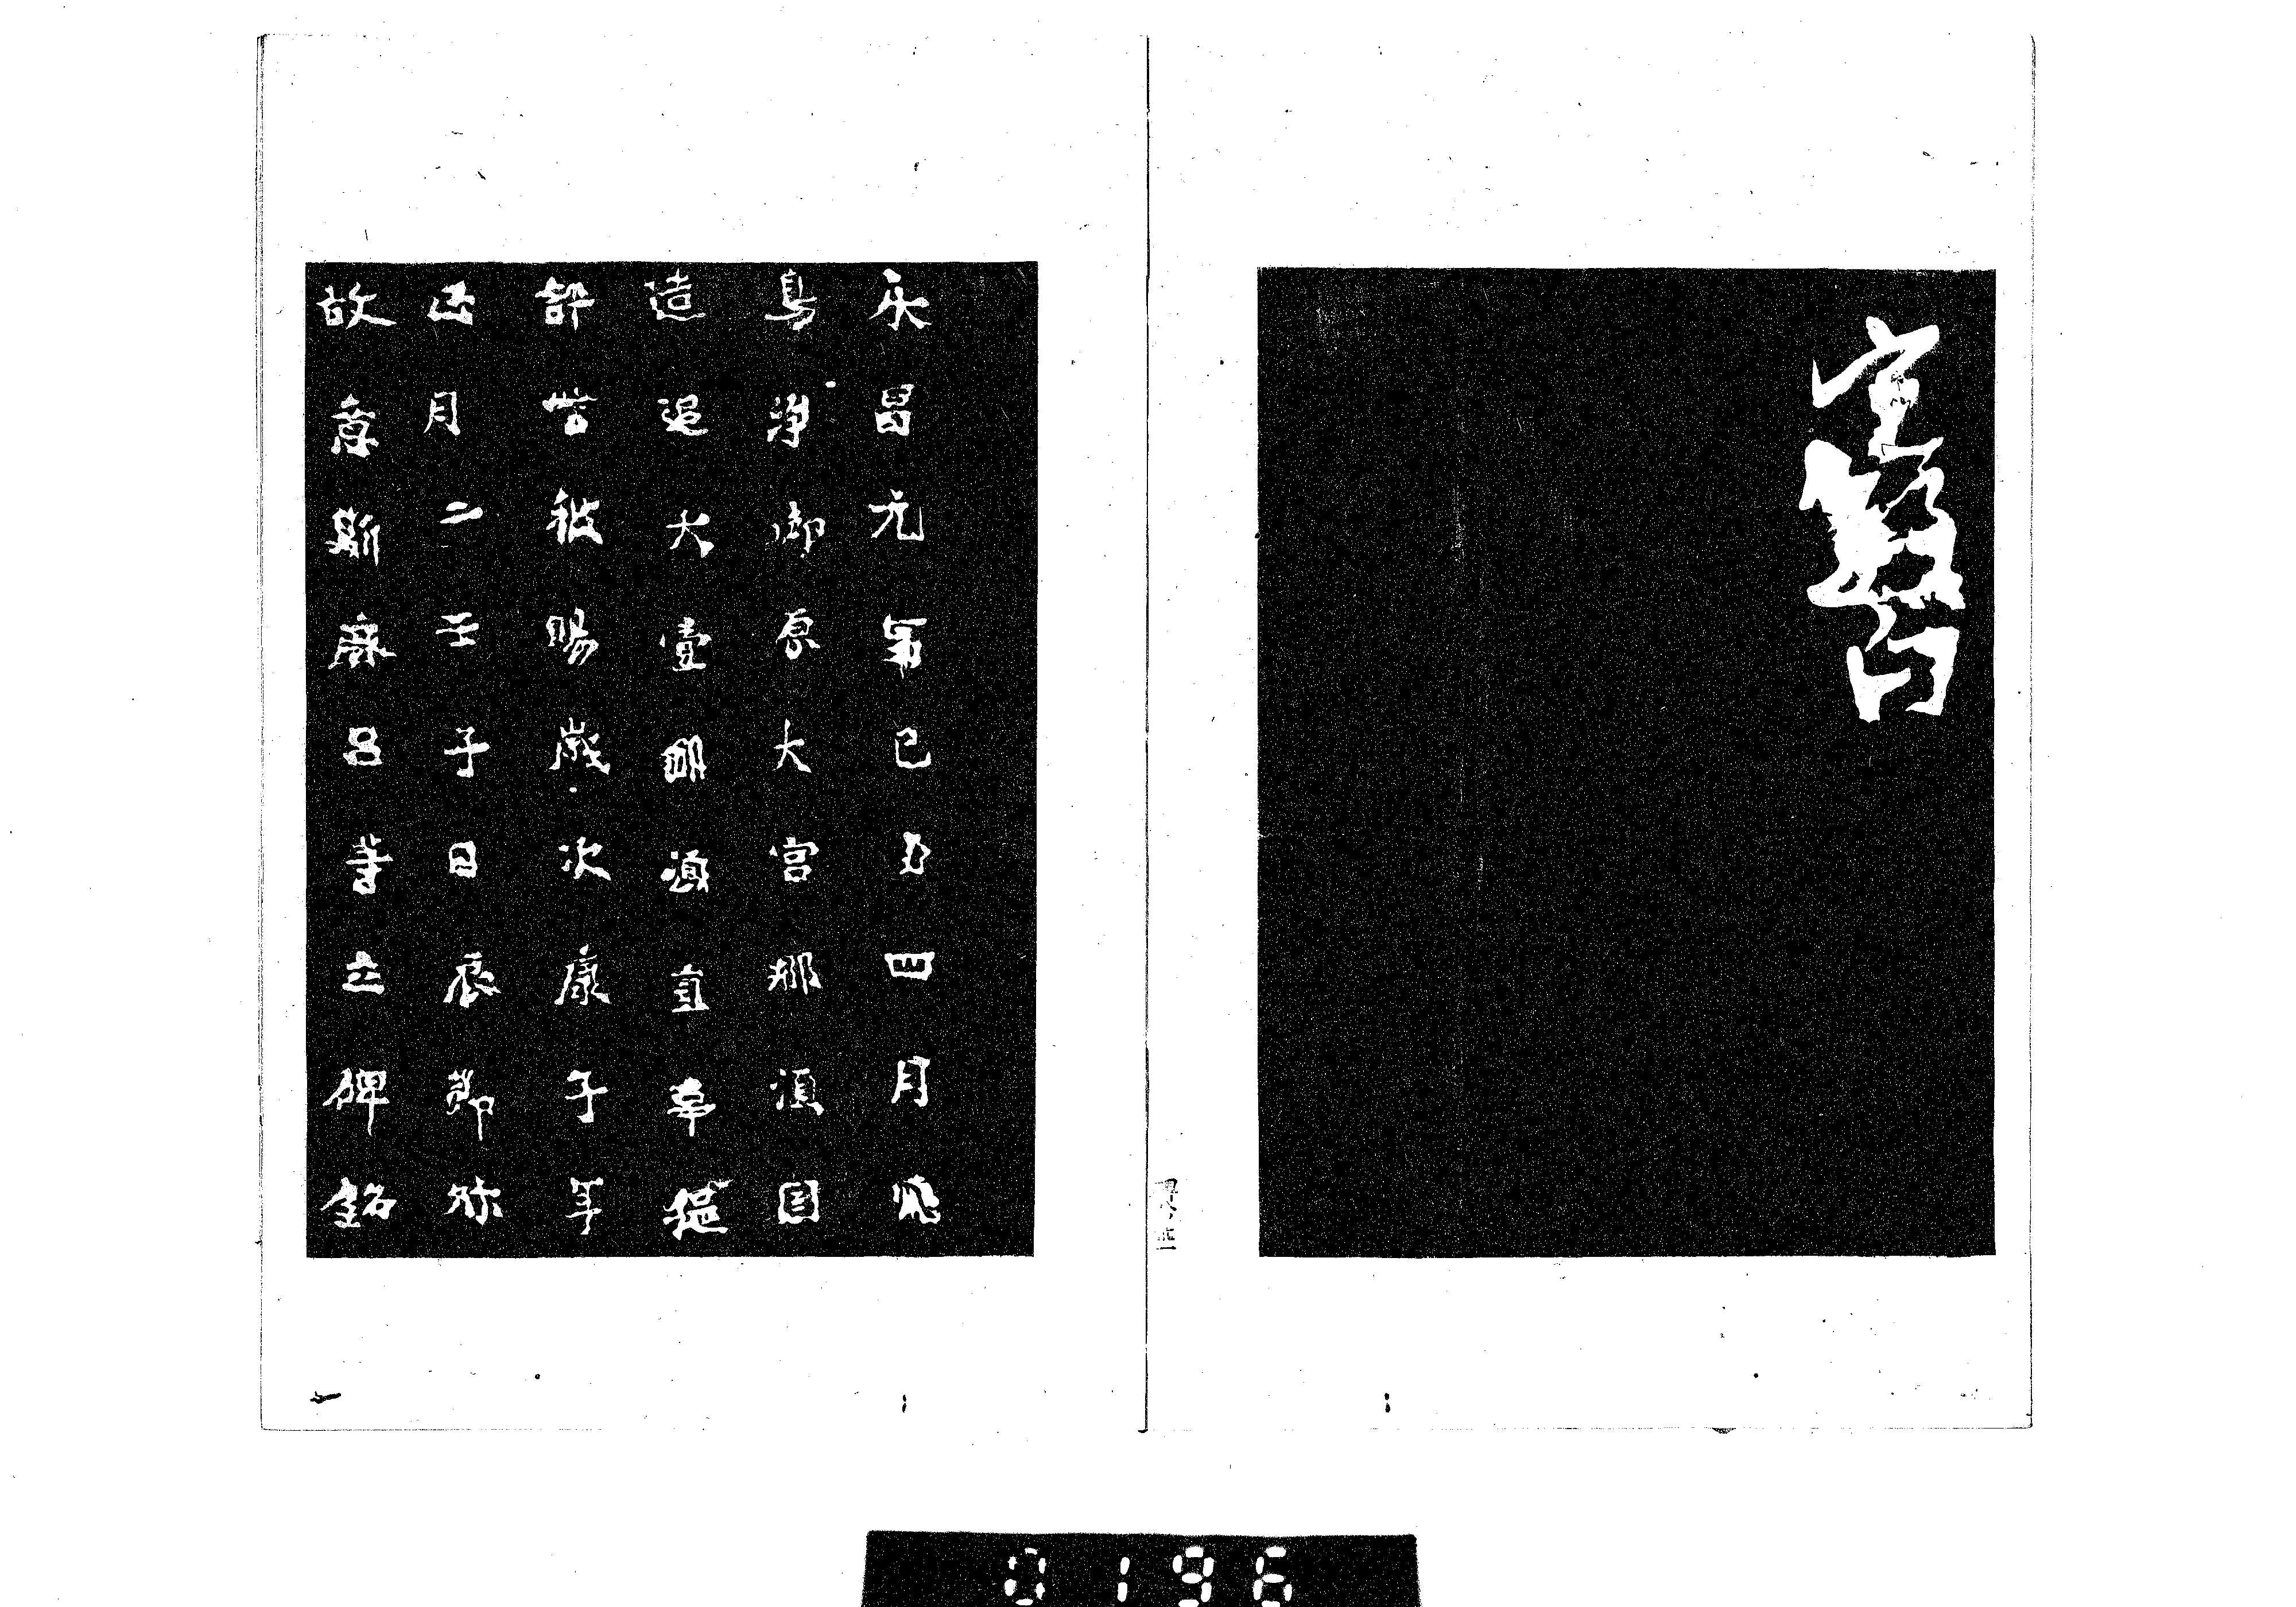 永昌元年己丑四月飛
鳥浄御原大宮那須国
造追大壹那須直韋提
評督被賜歳次康子年
正月二壬子日辰節殄
故意斯麻呂等立碑銘
0196